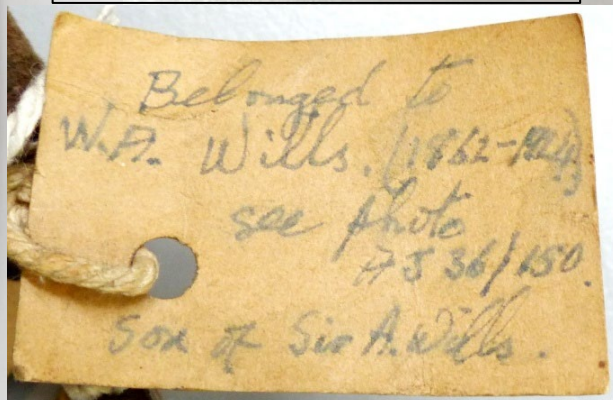 Belonged to
W.A. Wills. (1862-1924)
see photo
AJ 36/150.
Son of Sir A. Wills.